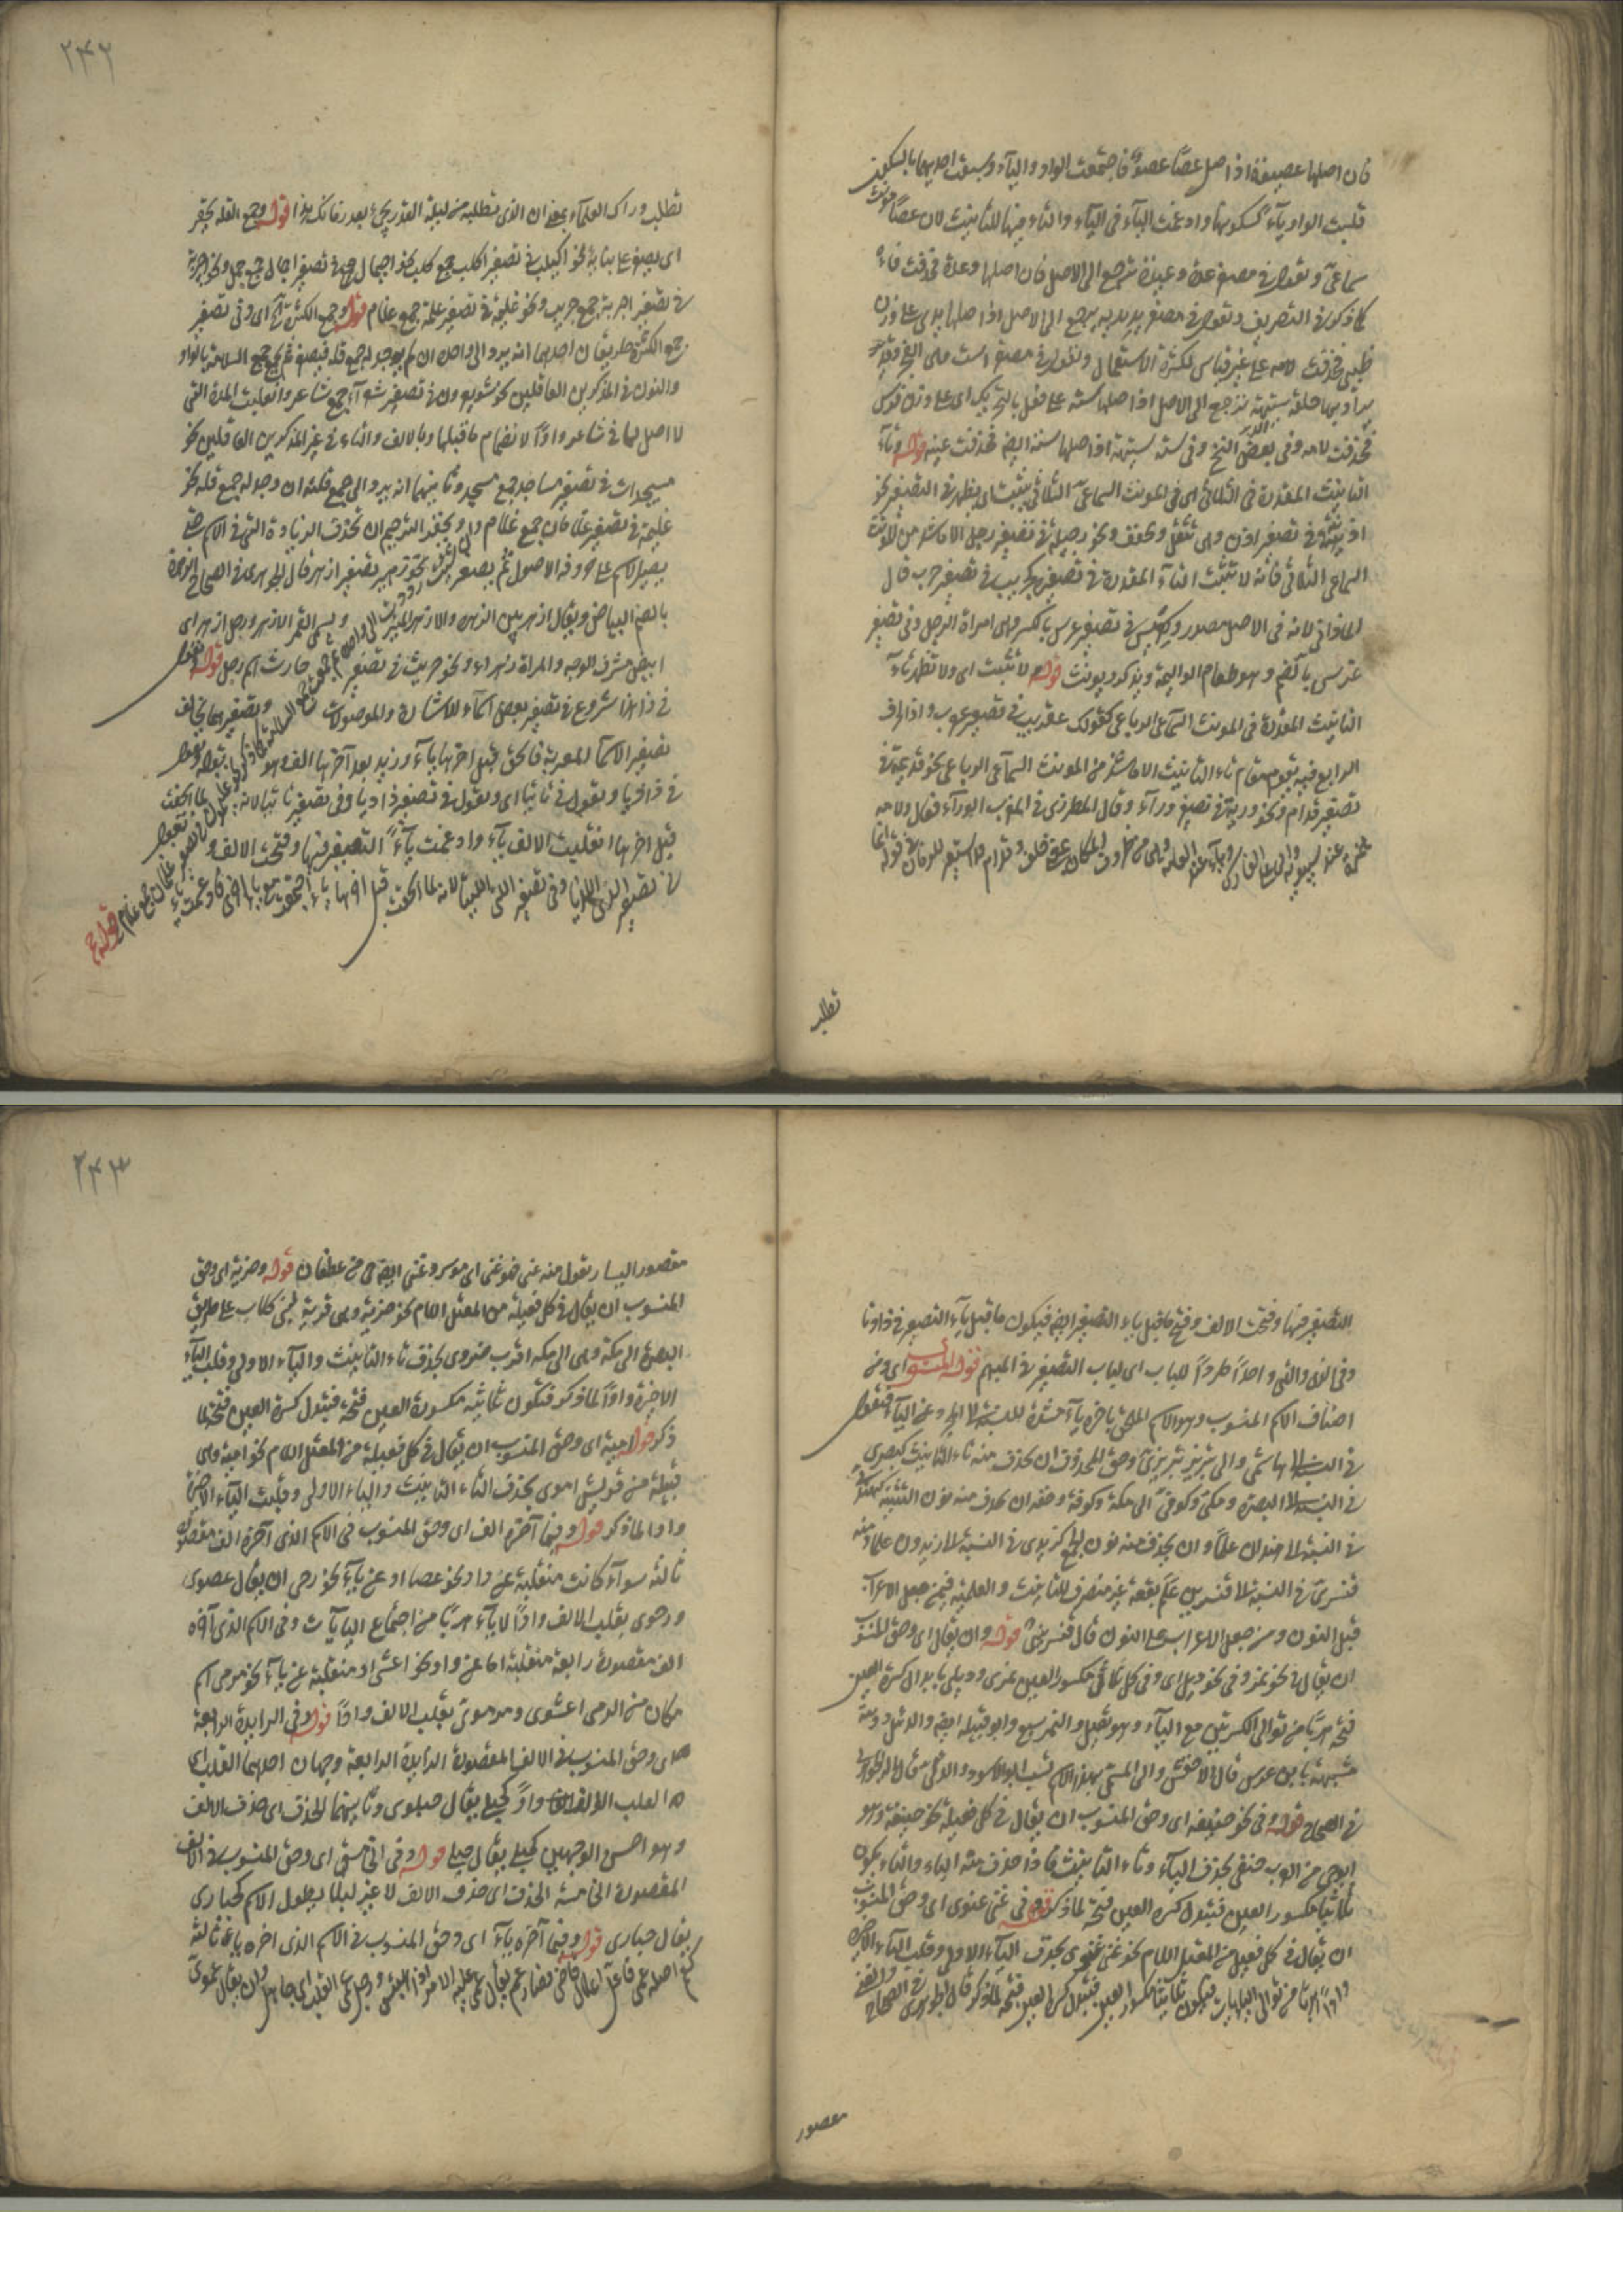 فان اصلها عصيوة اذ اصل عصا عصو فاجتمعت الواو والياء وسبقت احديهما بالسكون
قلبت الواو ياء لسكونها وادغمت الياء في الياء والتاء فيها للتانيث لان عصا مونث
سماعي وتقول في مصغر عدة وعيدة ترجع الى الاصل فان اصلها وعدة فحذفت فاءه
كما ذكر في التصريف وتقول في مصغر يد يدية يرجع الى الاصل اذ اصلها يدي على وزن
ظبي فحذفت لامه على غير قياس لكثرة الاستعمال وتقول في مصغر است
يراد بها حلقة الدبر ستيهة ترجع الى الاصل اذ اصلها سته على فعل بالتحريك اى على وزن فرس
فحذفت لامه وفي بعض النسخ وفي سته ستيهة اذ اصلها سته ايضا فحذفت عينه قوله وتاء
التانيث المقدرة في الثلاثي اى في المونث السماعي الثلاثي يثبت اى يظهر في التصغير نحو
اذينة في تصغير اذن وهي تثقل وتخفف ونحو رجيلة في تصغير رجل الا ما شذ من المونث
السماعي الثلاثي فانه لا تثبت التاء المقدرة في تصغيره كحريب في تصغير حرب قال
المازني لانه في الاصل مصدر وكعريس في تصغير عرس بالكسر وهي امراة الرجل وفي تصغير
عرس بالضم وهو طعام الوليمة ويذكر ويونث قوله لا تثبت اى ولا تظهر تاء
التانيث المقدرة في المونث السماعي الرباعي كقولك عقيرب في تصغير عقرب واذ الحرف
الرابع فيه يقوم مقام تاء التانيث الا ما شذ من المونث السماعي الرباعي نحو قديديمة في
تصغير قدام ونحو وريئة في تصغير وراء وقال المطرزي في المغرب الوراء فعال ولامه
همزة عند سيبويه
تطلب
٢٤٢
تطلب وراك العلماء بمعنى ان الذى تطلبه من ليلة القدر يجيء بعد زمانك هذا قوله وجمع القلة يحقر
اى يصغر على بنايه نحو اكيلب في تصغير اكلب جمع كلب ونحو اجيمال في تصغير اجمال جمع جمل ونحو اجيربة
في تصغير اجربة جمع جريب ونحو غليمة في تصغير غلمة جمع غلام قوله وجمع الكثرة اى وفي تصغير
جمع الكثرة طريقان احديهما انه يرد الى واحده ان لم يوجد له جمع قلة فيصغر ثم يجمع جمع السلامة بالواو
والنون في المذكرين العاقلين نحو شويعرون في تصغير شعراء جمع شاعر وانقلبت المدة التي
لا اصل لها في شاعر واوا لانضمام ما قبلها وبالالف والتاء في غير المذكرين العاقلين نحو
مسيجدات في تصغير مساجد جمع مسجد وثانيهما انه يرد الى جمع قلته ان وجد له جمع قلة نحو
غليمة في تصغير غلمان جمع غلام وتحقير الترخيم ان تحذف الزيادة التي في الاسم حتى
يصير الاسم على حروفه الاصول ثم يصغر نحو زهير تصغير ازهر قال الجوهري في الصحاح الزهرة
بالضم البياض ويقال ازهر بين الزهرة والازهر النير ويسمى القمر الازهر ورجل ازهر اى
ابيض مشرق الوجه والمراة زهراء ونحو حريث في تصغير حارث اسم رجل قوله وتقول
في ذا هذا شروع في تصغير بعض اسماء الاشارة والموصولات وتصغيرها يخالف
تصغير الاسماء المعربة فالحق قبل اخرها ياء وزيد بعد آخرها الف
في ذا ذيا وتقول في تا تيا اى وتقول في تصغير ذا ذيا وفي تصغير تا تيا لانه لما الحقت
قبل اخرها انقلبت الالف ياء وادغمت ياء التصغير فيها وفتحت الالف وتقول
في تصغير الذي اللذيا وفي تصغير التي اللتيا لانه لما الحقت قبل اخرها ياء
التصغير فيها وفتحت الالف وفتح ما قبل ياء التصغير ايضا فيكون ما قبل ياء التصغير في ذا وتا
وفي الذى والتي واحدا طردا للباب اى لباب التصغير في المبهم قوله المنسوب اى ومن
اصناف الاسم المنسوب وهو الاسم الملحق باخره ياء مشددة للنسبة الى المجرد عن الياء فتقول
في النسبة الى هاشم هاشمي والى تبريز تبريزي وحق المحذوف ان يحذف منه تاء التانيث كبصري
في النسبة الى البصرة ومكي وكوفي الى مكة وكوفة وحقه ان يحذف منه نون التثنية كهندي
في النسبة الى هندان علما وان يحذف منه نون الجمع كزيدى في النسبة الى زيدون علما ومنه
قنسري في النسبة الى قنسرين علم بقعة غير منصرف للتانيث والعلمية فيمن جعل الاعراب
قبل النون ومن جعل الاعراب على النون قال قنسريني قوله وان يقال اى وحق المنسوب
ان يقال في نحو نمر وفي نحو دئل اى وفي كل ثلاثي مكسور العين نمري ودئلي بابدال كسرة العين
فتحة هربا من توالي الكسرتين مع الياء وهو ثقيل والنمر سبع وابو قبيلة ايضا والدئل دويبة
شبيهة بابن عرس قال الاخفش والى المسمى بهذا الاسم نسب ابو الاسود الدئلي
في الصحاح قوله وفي نحو حنيفة اى وحق المنسوب ان يقال في كل فعيلة نحو حنيفة وهو
ابو حي من العرب حنفي بحذف الياء وتاء التانيث فاذا حذف منه الياء والتاء يكون
ثلاثيا مكسور العين فتبدل كسرة العين فتحة لما ذكر قوله وفي غني غنوي اى وحق المنسوب
ان يقال في كل فعيل من المعتل اللام نحو غني غنوي بحذف الياء الاولى وقلب الياء الاخيرة
واوا هربا من توالي الياءات فيكون ثلاثيا مكسور العين فتبدل كسرة العين فتحة لما ذكر قال الجوهري في الصحاح والغنى
مقصور
٢٤٣
مقصور اليسار تقول منه غني فهو غني اى موسر وغني ايضا حي من غطفان قوله وضرية اى وحق
المنسوب ان يقال في كل فعيلة من المعتل اللام نحو ضرية وهي قرية لبني كلاب على طريق
البصرة الى مكة وهي الى مكة اقرب ضروي بحذف تاء التانيث والياء الاولى وقلب الياء
الاخيرة واوا لما ذكر فتكون ثلاثية مكسورة العين فتبدل كسرة العين فتحة لما
ذكر قوله امية اى وحق المنسوب ان يقال في كل فعيلة من المعتل اللام نحو امية وهي
قبيلة من قريش اموى بحذف التاء التانيث والياء الاولى وقلبت الياء الاخيرة
واوا لما ذكر قوله وفيما آخره الف اى وحق المنسوب في الاسم الذى آخره الف مقصورة
ثالثة سواء كانت منقلبة عن واو نحو عصا او عن ياء نحو رحى ان يقال عصوى
ورحوى بقلب الالف واوا لا ياء هربا من اجتماع الياءات وفي الاسم الذى آخره
الف مقصورة رابعة منقلبة اما عن واو نحو اعشى او منقلبة عن ياء نحو مرمى اسم
مكان من الرمي اعشوى ومرموى بقلب الالف واوا قوله وفي الزايدة الرابعة
اى وحق المنسوب في الالف المقصورة الزايدة الرابعة وجهان احديهما القلب اى
القلب الالف واوا كحبلى يقال حبلوى وثانيهما الحذف اى حذف الالف
وهو احسن الوجهين كحبلى يقال حبلي قوله وفي الخامسة اى وحق المنسوب في الالف
المقصورة الخامسة الحذف اى حذف الالف لا غير ليلا يطول الاسم كحبارى
يقال حبارى قوله وفيما آخره ياء اى وحق المنسوب في الاسم الذى اخره ياء ثالثة